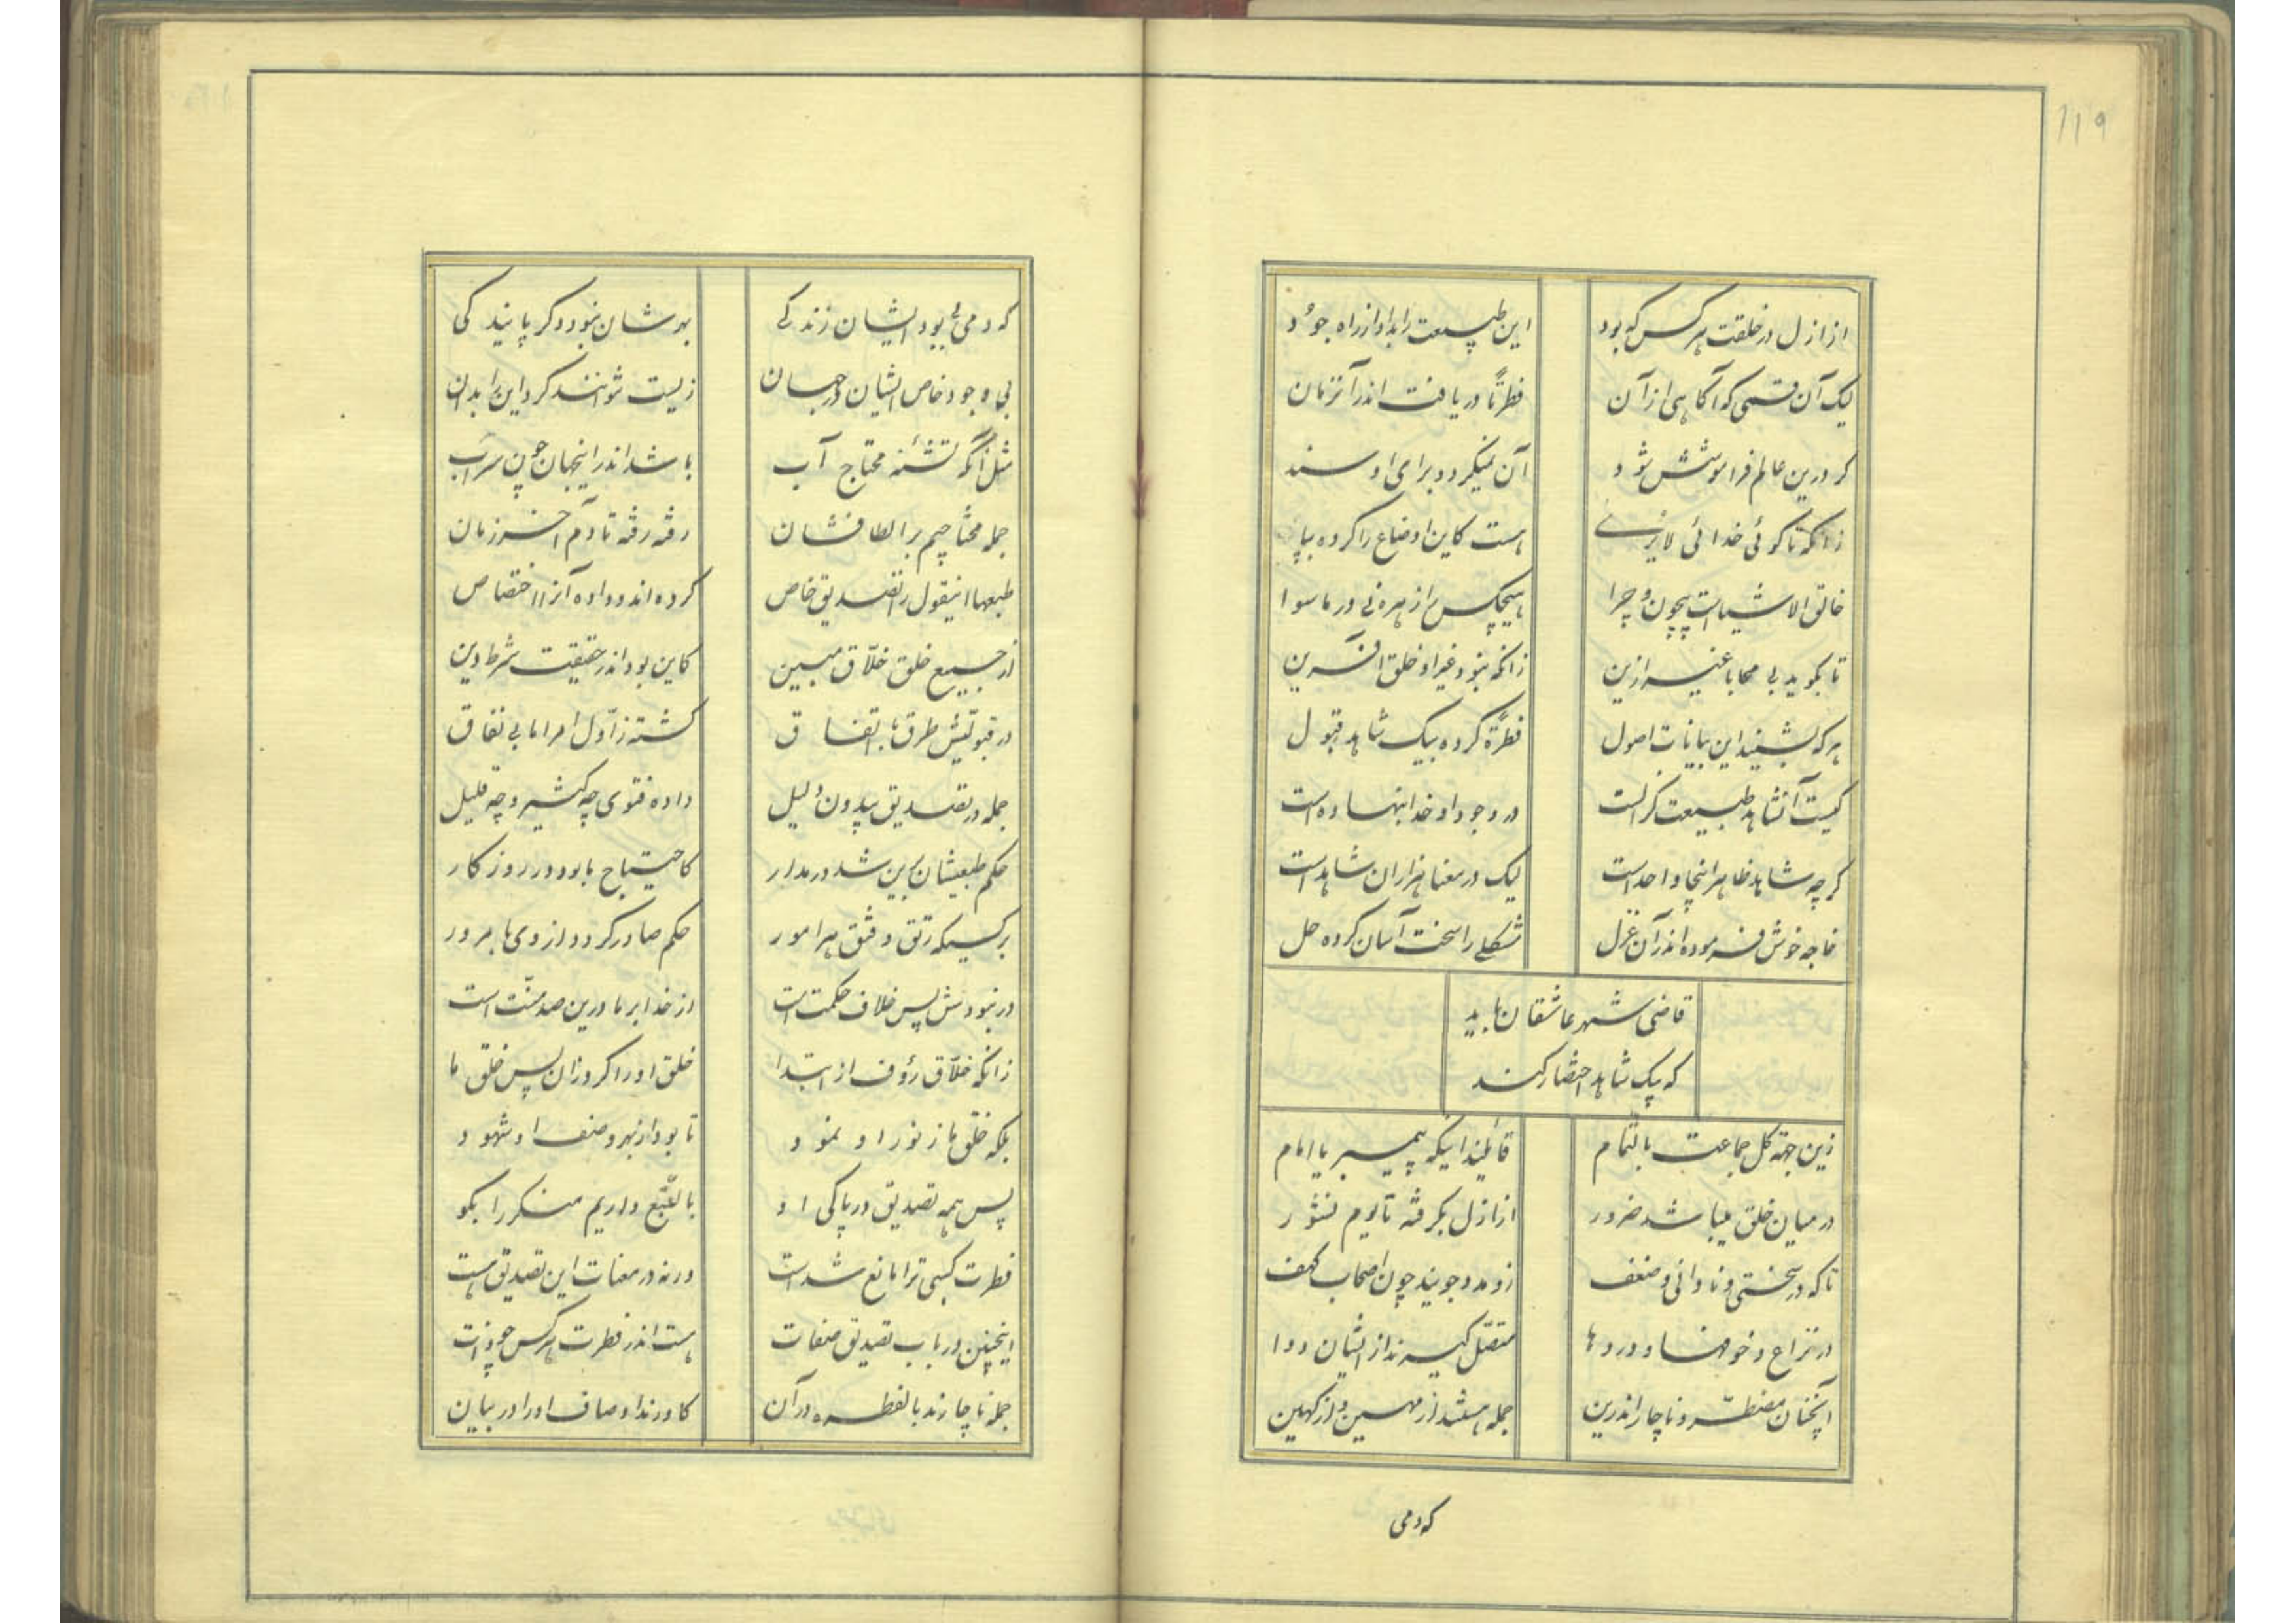 ۱۱۹
از ازل در خلقت هر کس که بود
این طبیعت را بداد از راه جود
لیک آن قسمی که آگاهی از آن
فطرتاً دریافت اندر آنزمان
گر درین عالم فراموشش شود
آن نمیگردد برای او سند
زانکه تا گوئی خدائی لایزالے
هست کاین اوضاع را کرده بپا
خالق الاشیاست بیچون و چرا
هیچکس را زهره نی در ماسوا
تا بگوید بی محابا غیر ازین
زانکه نبود غیر او خلق آفرین
هر که بشنید این بیانات اصول
فطرةً کرده بیک شاهد قبول
کیست آنشاهد طبیعت کز الست
در وجود او خدا بنهاده است
گرچه شاهد ظاهراً اینجا واحد است
لیک در معنا هزاران شاهد است
خاجه خوش فرموده اندر آن غزل
مشکلے را سخت آسان کرده حل
قاضی شهر عاشقان باید
که بیک شاهد اختصار کند
زین جهة کل جماعت بالتمام
قائلند اینکه پیمبر یا امام
در میان خلق میباشد ضرور
از ازل بگرفته تا یوم نشور
تا که در سختی و نادانی و ضعف
زو مدد جویند چون اصحاب کهف
در نزاع و خوفها و دردها
متصّل گیرند از ایشان دوا
آنچنان مضطرّ و ناچار اندرین
جمله هستند از مهین و از کهین
که دمی
که دمی بی بود ایشان زندگے
بهرشان نبود دگر پایندگی
بی وجود خاص ایشان در جهان
زیست نتوانند کرد این را بدان
مثل آنکه تشنه محتاج آب
باشد اندر اینجهان چون سراب
جمله محتاجیم بر الطافشان
رفته رفته تا دم آخر زمان
طبعها اینقول را تصدیق خاص
کرده اند و داده آنرا اختصاص
از جمیع خلق خلّاق مبین
کاین بود اندر حقیقت شرط دین
در قبولش طرق با اتفاق
گشته ز اوّل امر اما بی نفاق
جمله در تصدیق بیدون دلیل
داده فتوی چه کثیر و چه قلیل
حکم طبعیشان براین شد در مدار
کاحتیاج ما بود در روزگار
بر کسیکه رتق و فتق هر امور
حکم صادر گردد از وی با مرور
در نبودش پس خلاف حکمت است
از خدا بر ما درین صد منّت است
زانکه خلّاق رؤف از ابتدا
خلق او را کرد زان پس خلق ما
بلکه خلق ما ز نور او نمود
تا بود از بهر وصف او شهود
پس همه تصدیق در پاکی او
بالطّبع داریم منکر را بگو
فطرت کسبی ترا مانع شد است
ورنه در معنات این تصدیق هست
اینچنین در باب تصدیق صفات
هست اندر فطرت هر کس چو ذات
جمله ناچارند بالفطره در آن
کاورند اوصاف او را در بیان